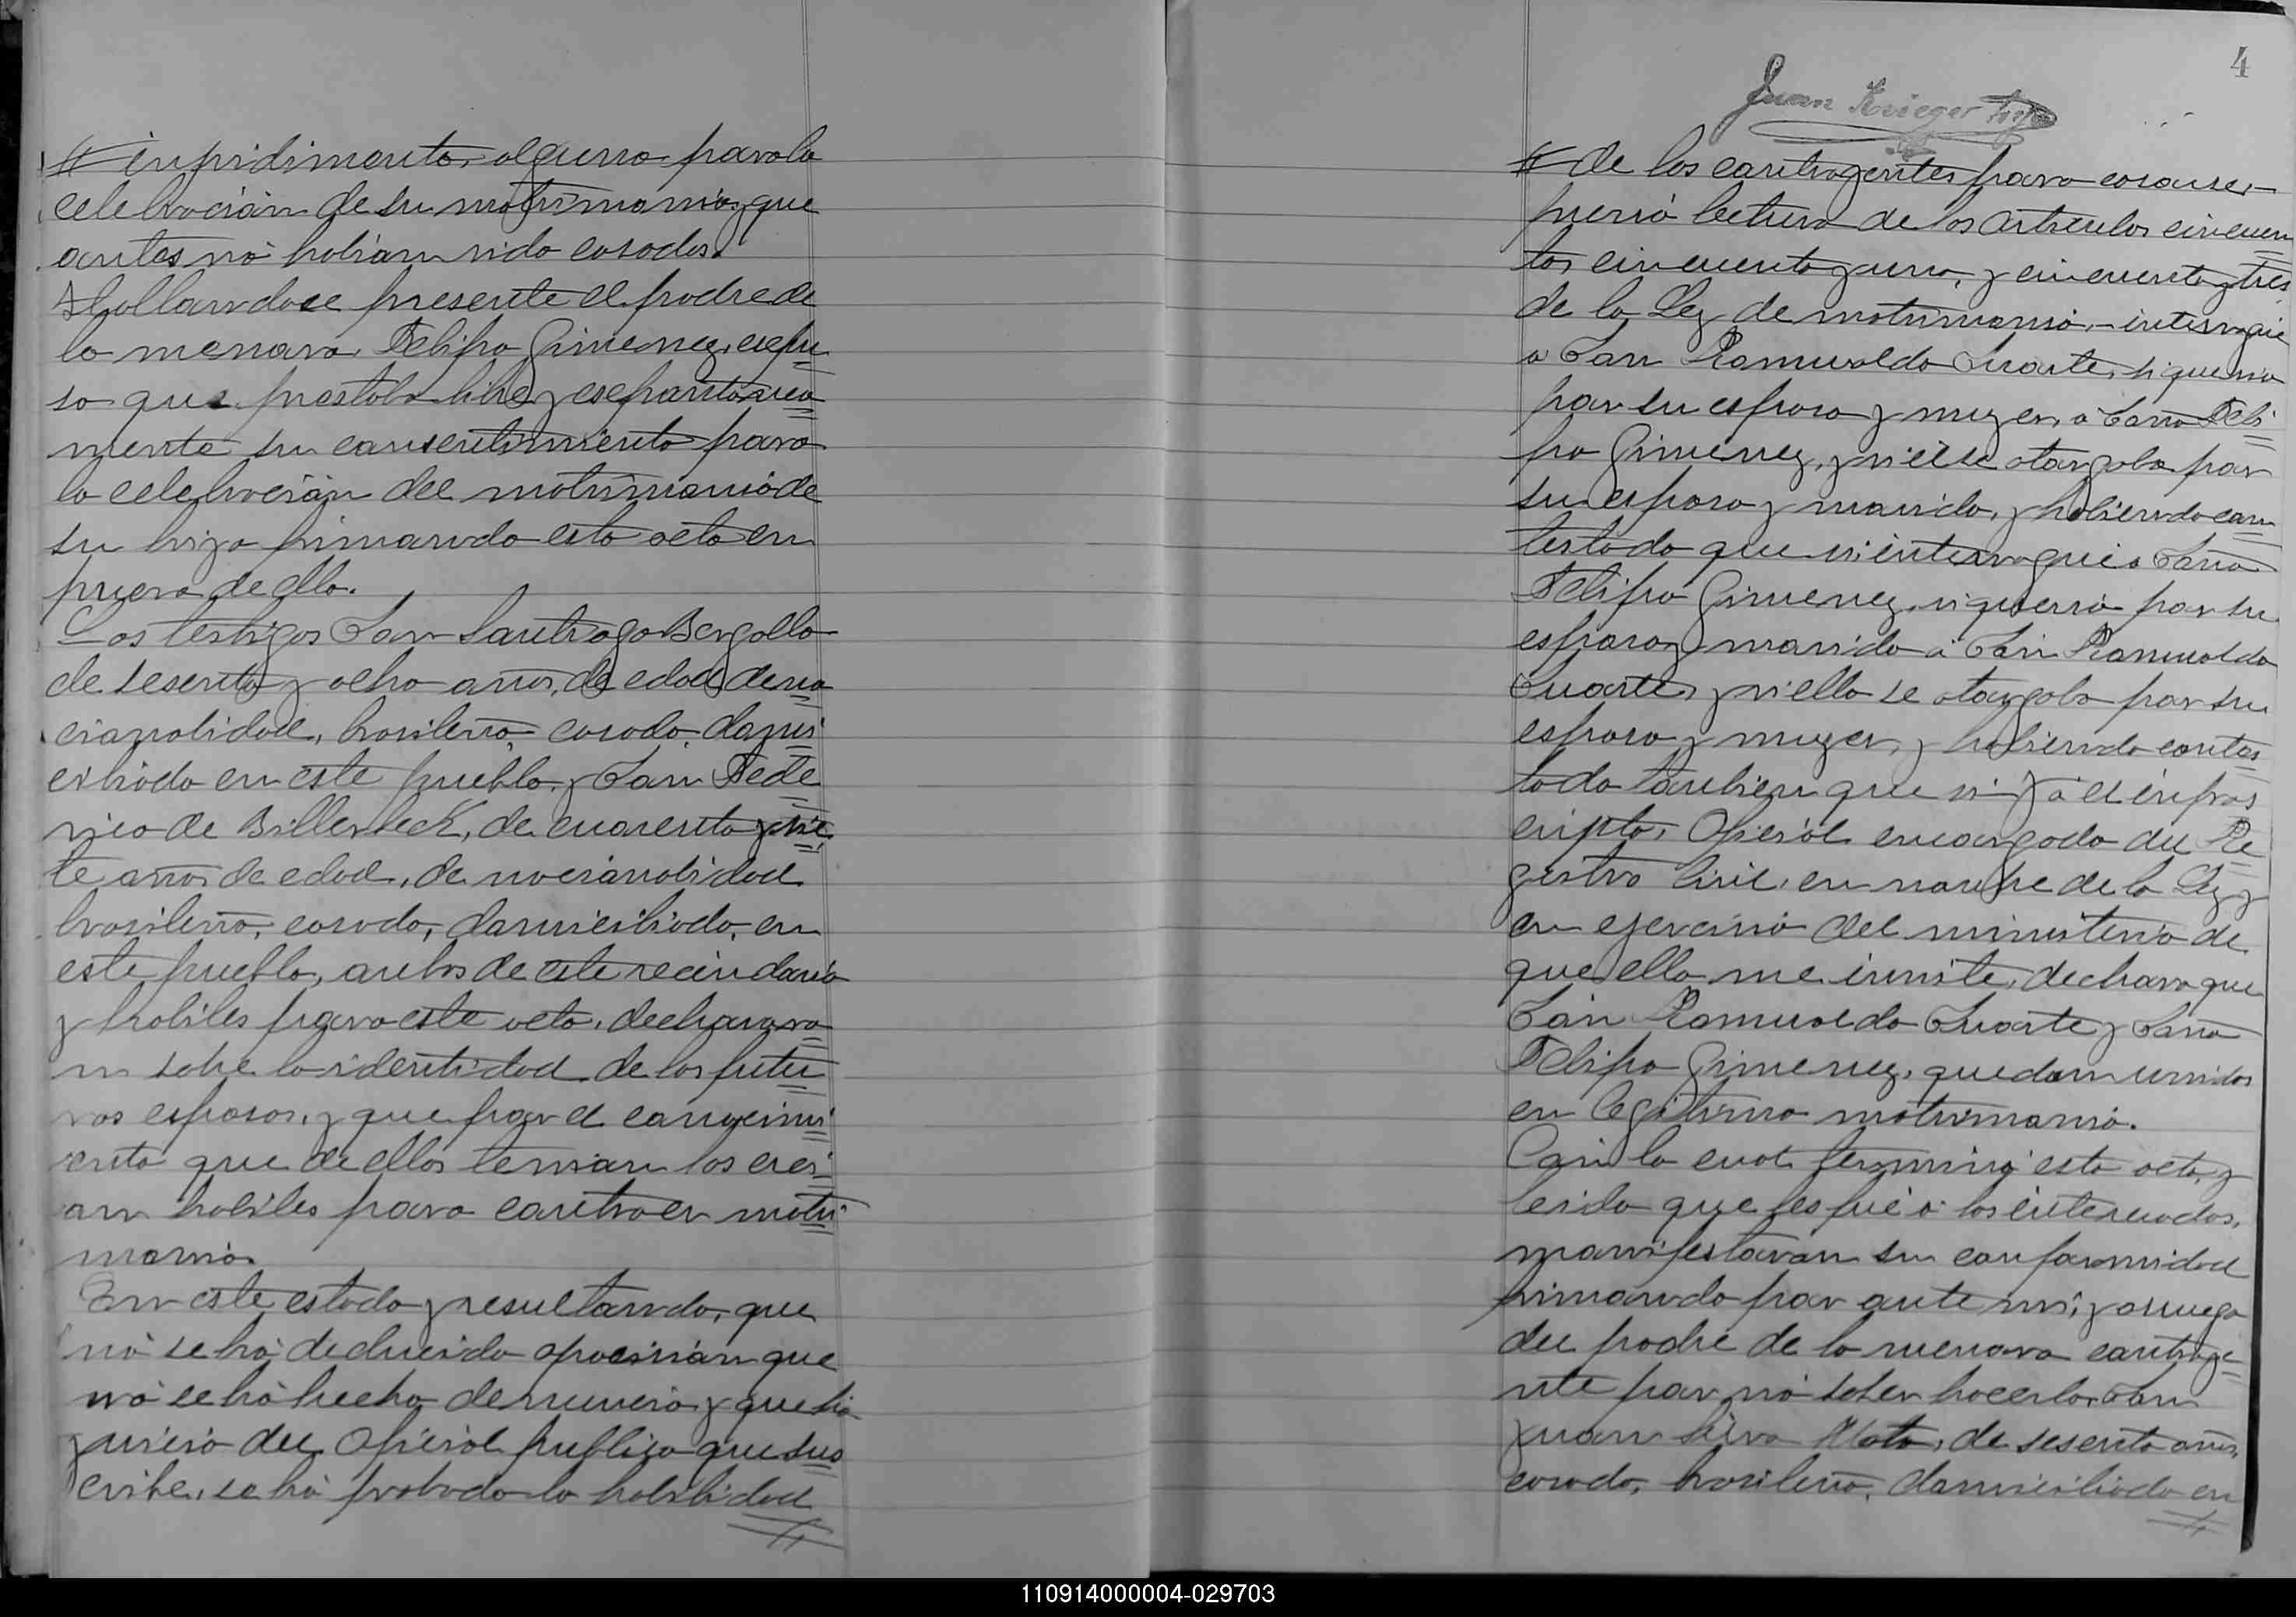 # inpidimento, alguno para la
celebración de su matrimonio, y que
antes nó habían sido casados.
Hallandose presente el padre de
la menora, Felipa Gimenez, espu
so que prestaba libre y espontanea
mente su consentimiento para
la celebración del matrimonio de
su hija firmando esta acta en
prueva de ello.
Los testigos Don Santiago Bergallo
de sesenta y ocho años, de edad de na
cianalidad, brasilero, casado, domi
ciliado en este pueblo, y Don Fede
rico de Billerbeck, de cuarenta y sie
te años de edad, de nacianalidad
brasilero, casado, domiciliado, en
este pueblo, anbos de este vecindario
y habiles para este acto, declararo
n sobre la identidad de los futu
ros esposos, y que por el conocimi
ento que de ellos tenian los crei
an habiles para contraer matri
monio.
En este estado y resultando, que
nó se há deducido oposición que
nó se há hecho denuncia, y que há
juicio del Oficial Publico que sus
cribe, se há probado la habilidad
4
Juan Krieger hijo
# de los contragentes para casarse,
previó lectura de los Articulos cincuen
ta, cincuenta y uno, y cincuenta y tres
de la Ley de matrimonio, - interrogué
a Don Romualdo Duarte, si queria
por su esposa y mujer, a Doña Feli
pa Gimenez, y si él se otorgaba por
su esposo y marido, y habiendo con
testado que si interrogué a Doña
Felipa Gimenez, si queria por su
esposo y marido a Don Romualdo
Duarte, y si ella se otorgaba por su
esposa y mujer, y habiendo contes
tado tanbien que si Yó el infras
cripto, Oficial encargado del Re
gistro Civil, en nonbre de la Ley y
en ejercicio del ministerio de
que ella me inviste, declaro que
Don Romualdo Duarte y Doña
Felipa Gimenez, quedan unidos
en legitimo matrimonio.
Con lo cual terminó esta acta, y
leida que les fué á los interesados,
manifestaron su conformidad
firmando por ante mi, y a ruego
del padre de la menora contraje
nte por nó saber hacerlo, Don
Juan Silva Mota, de sesenta años,
casado, brasilero, domiciliado en
110914000004-029703